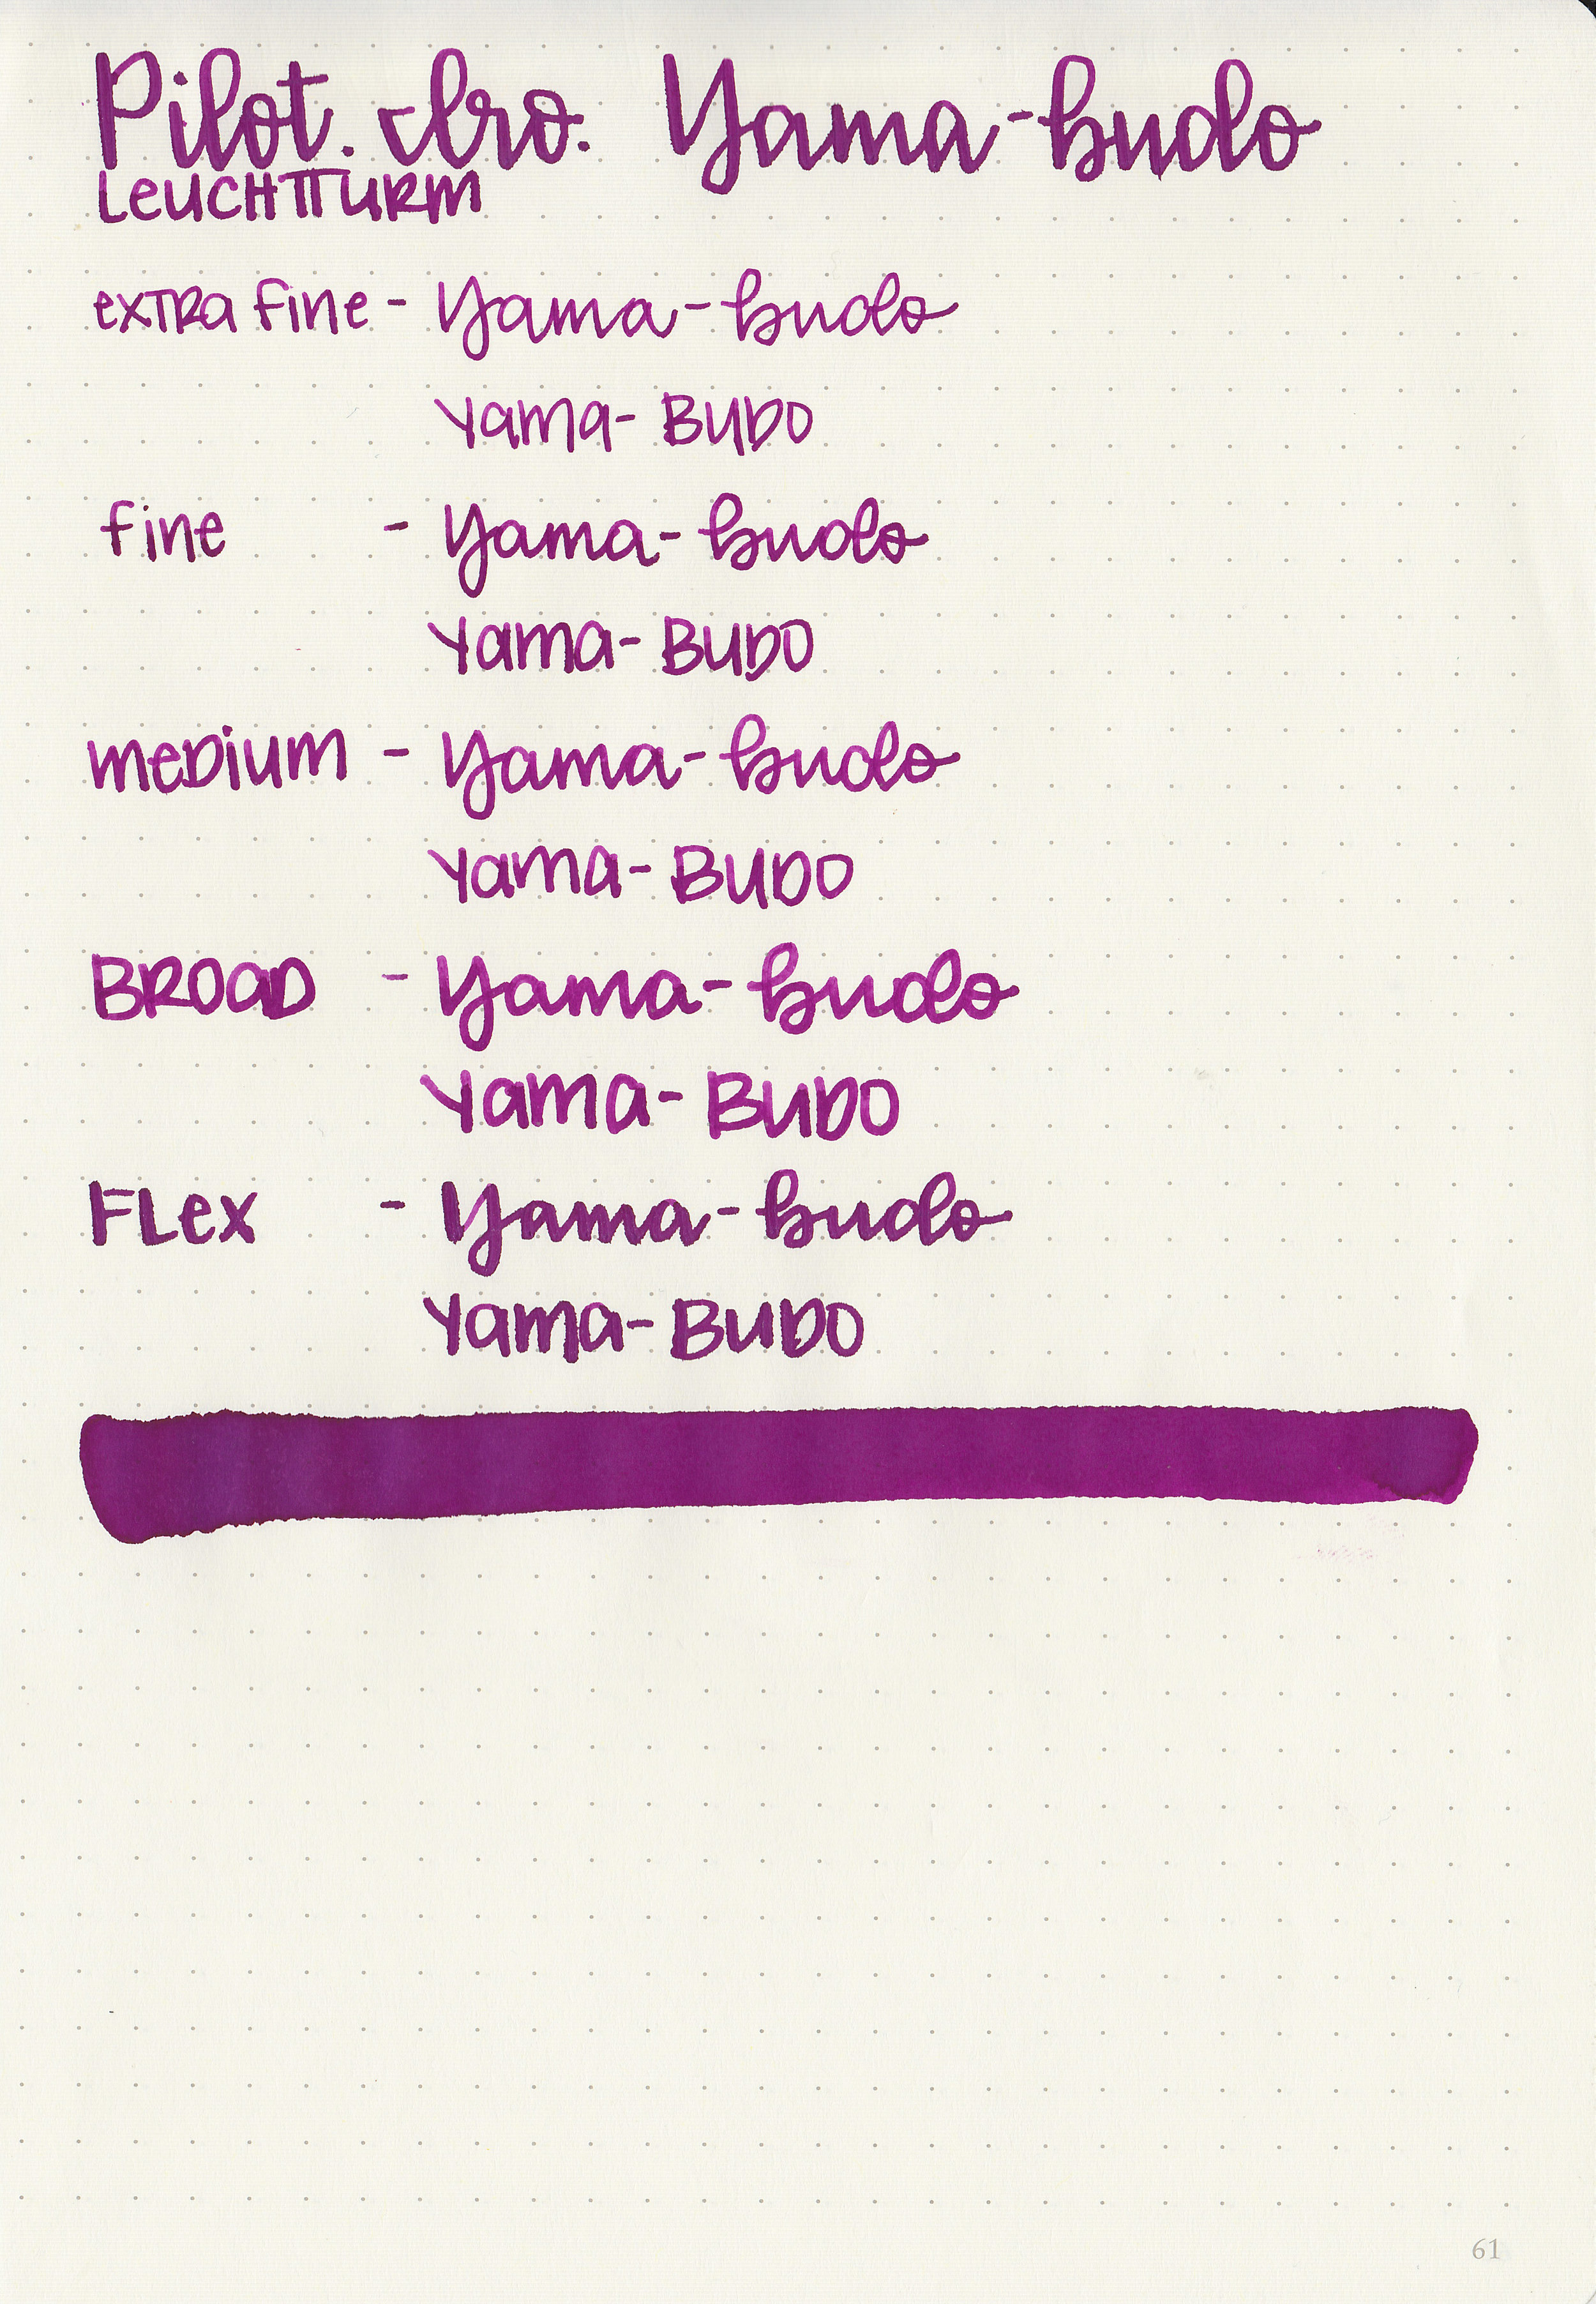 Pilot. Iro. Yama-budo
Leuchtturm
extra fine - Yama-budo
Yama-Budo
fine - Yama-budo
Yama-Budo
medium - Yama-budo
Yama-Budo
Broad - Yama-budo
Yama-Budo
Flex - Yama-budo
Yama-Budo
61